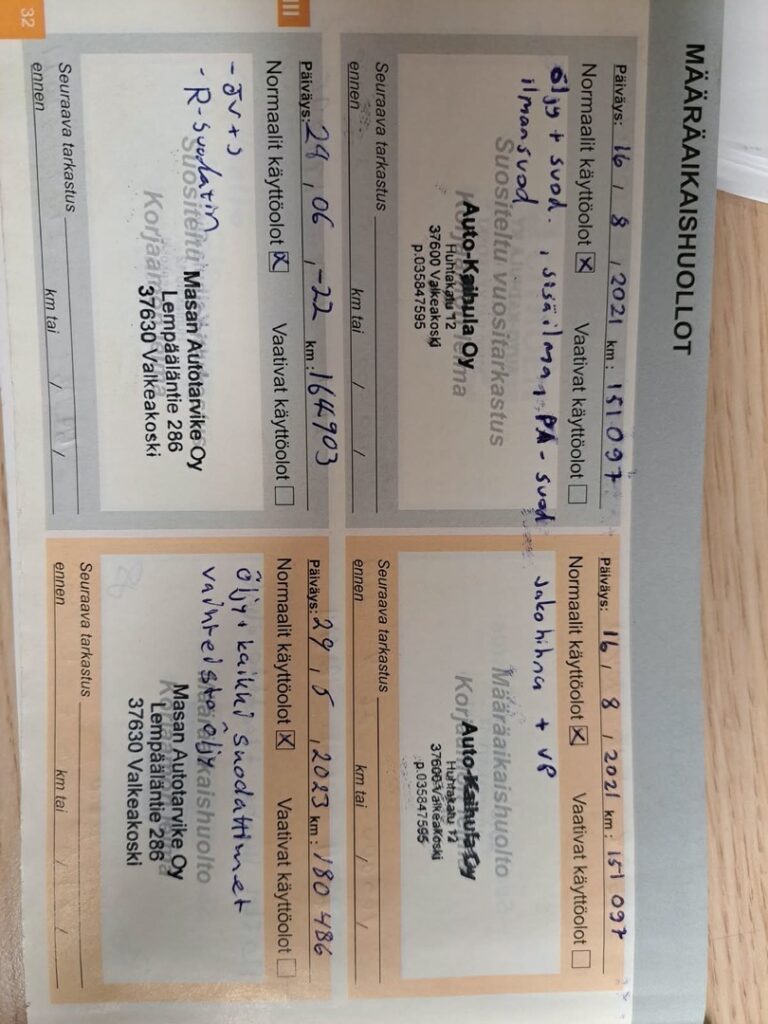 MÄÄRÄAIKAISHUOLLOT
Päiväys: 16 / 8 / 2021 km: 151 097
Normaalit käyttöolot X Vaativat käyttöolot
öljy + suod. , sisäilman, PA-suod
ilmansuod
Suositeltu vuositarkastus
Auto-Kaihula Oy
Huhtakatu 12
37600 Valkeakoski
p.035847595
Seuraava tarkastus
ennen km tai / /
Päiväys: 16 / 8 / 2021 km: 151 097
Normaalit käyttöolot X Vaativat käyttöolot
Jakohihna + VP
Määräaikaishuolto
Auto-Kaihula Oy
Huhtakatu 12
37600 Valkeakoski
p.035847595
Seuraava tarkastus
ennen km tai / /
Päiväys: 29, 06, -22 km: 164903
Normaalit käyttöolot X Vaativat käyttöolot
- R-suodatin
Suositeltu
Masan Autotarvike Oy
Lempääläntie 286
37630 Valkeakoski
Seuraava tarkastus
ennen km tai / /
Päiväys: 29, 5, 2023 km: 180 486
Normaalit käyttöolot X Vaativat käyttöolot
Öljy + kaikki suodattimet
vaihteisto öljy
Määräaikaishuolto
Masan Autotarvike Oy
Lempääläntie 286
37630 Valkeakoski
Seuraava tarkastus
ennen km tai / /
32